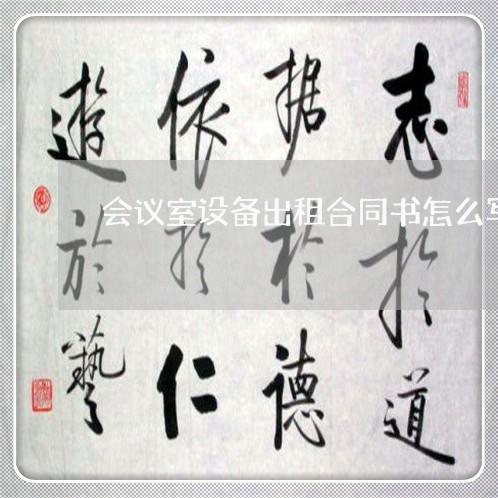 志於道
据於德
依於仁
遊於藝
会议室设备出租合同书怎么写